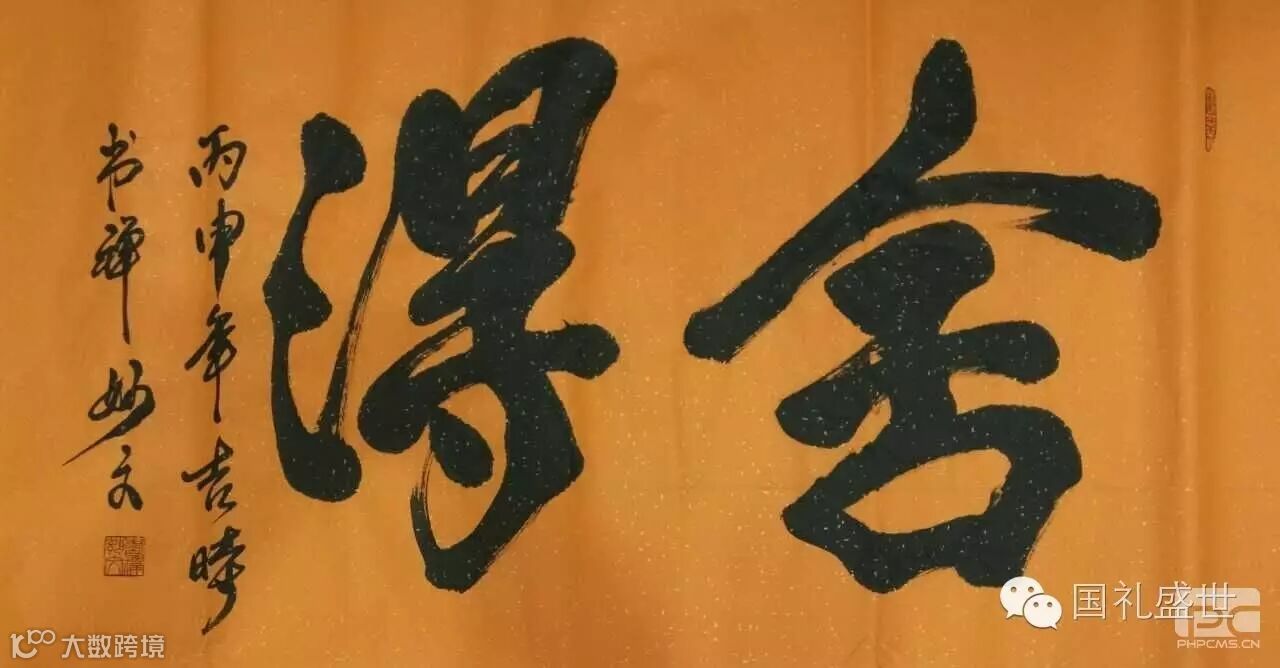 舍得
丙申年吉時
禅妙文
国礼盛世
PHPCMS.CN
大数跨境